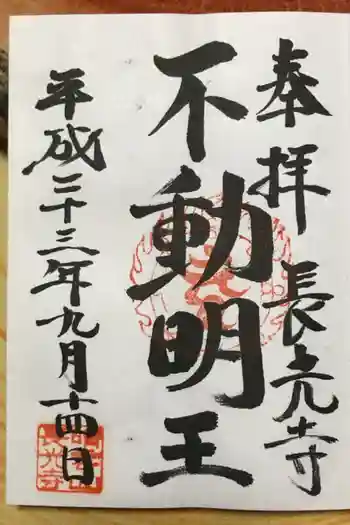 奉拝 長光寺
不動明王
平成二十三年九月十四日